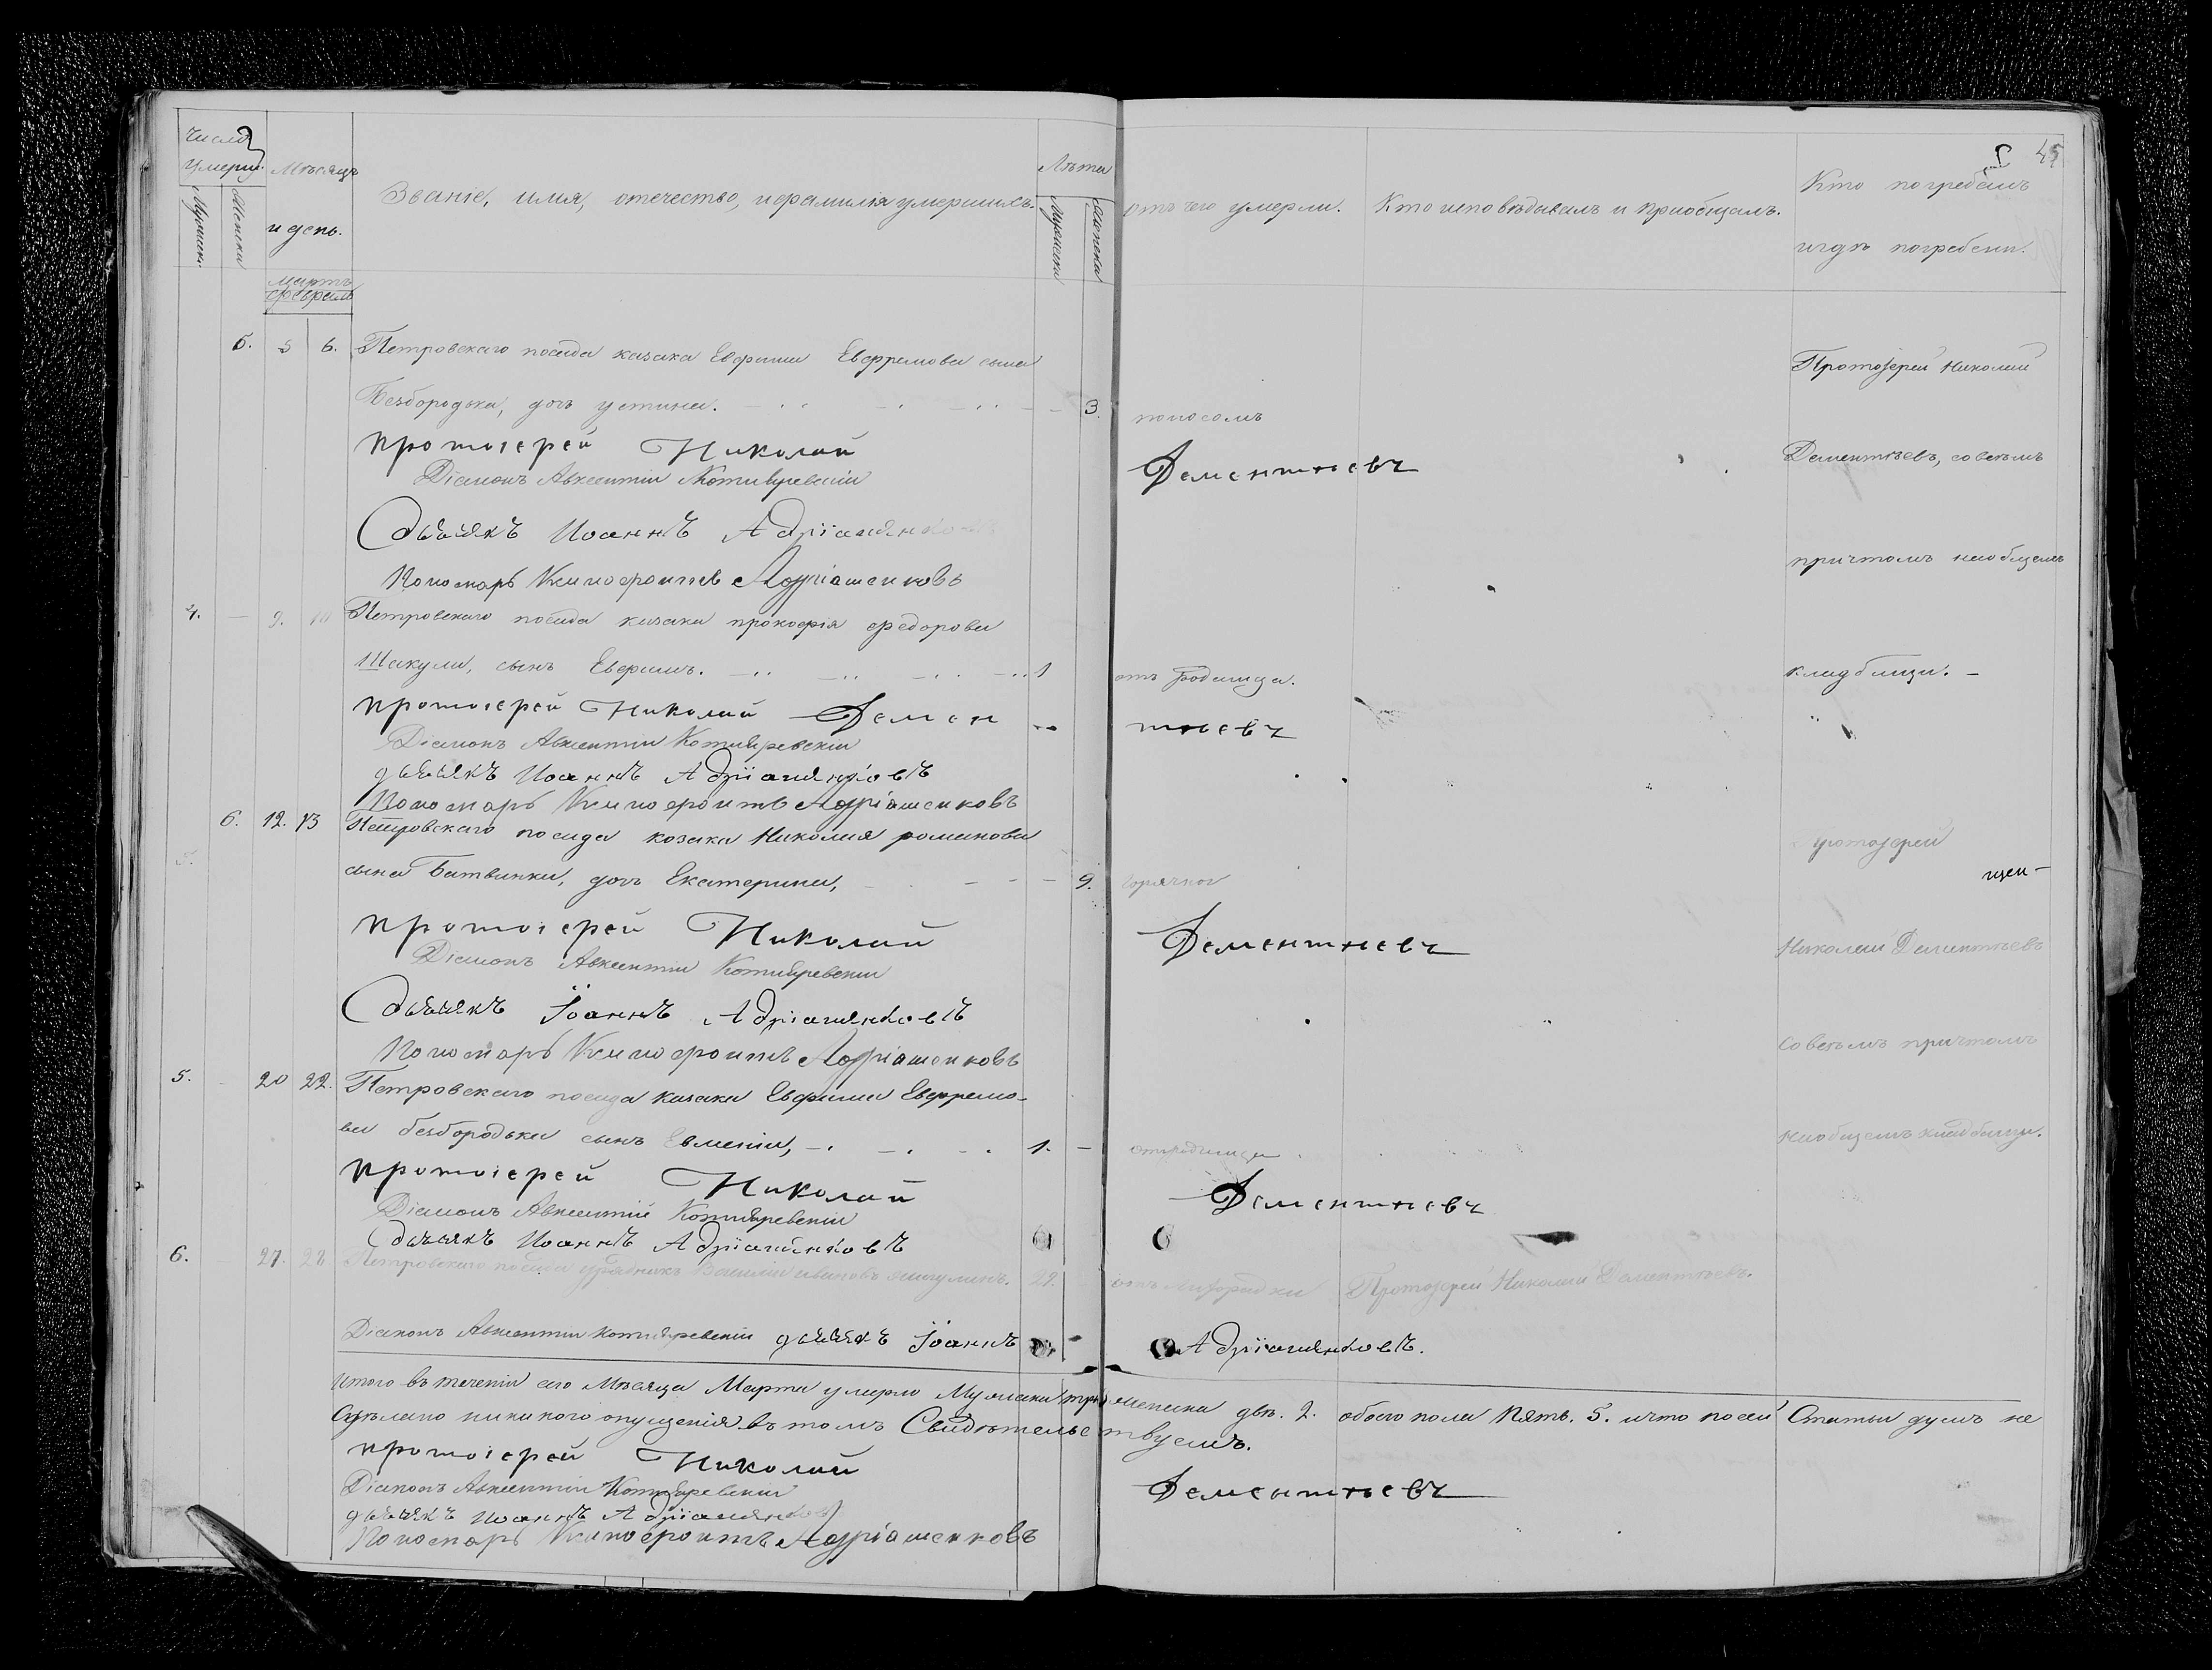 Число умерш.
Мужеск.
Женска
Мѣсяцъ и день.
Званіе, имя, отечество, и фамилія умершихъ.
Лѣта
Мужеска
Женска
отъ чего умерли.
Кто исповѣдывалъ и пріобщалъ.
Кто погребалъ
и гдѣ погребенъ.
45
мартъ
февраль
5. 5 6. Петровскаго посада казака Евфима Евфремова сына
Безбородька, дочь устина. 3. поносомъ
Протоіерей Николай
Дементьевъ, со всемъ
причтомъ на общемъ
кладбищи.
протоіерей Николай Дементьевъ
Діаконъ Авксентій Котляревскій
дьячекъ Иоаннъ Адріашенковъ
Пономарь Ксинофонтъ Адріашенковъ
4. — 9. 10 Петровскаго посада казака прокофія федорова
Шакули, сынъ Евфимъ. 1 отъ родимца.
протоіерей Николай Дементьевъ
Діаконъ Авксентій Котляревскій
дьячекъ Иоаннъ Адріашенковъ
Пономарь Ксинофонтъ Адріашенковъ
6. 12. 13 Петровскаго посада козака Николая романова
5.
сына Батвинки, дочь Екатерина, 9. горячкой
протоіерей
Николай Дементьевъ
со всемъ притомъ
на общемъ кладбищи.
протоіерей Николай Дементьевъ
Діаконъ Авксентій Котляревскій
дьячекъ Іоаннъ Адріашенковъ
Пономарь Ксинофонтъ Адріашенковъ
5. 20 22. Петровскаго посада казака Евфима Евфремо-
ва безбородька сынъ Евменій, 1. — отъ родимца
протоіерей Николай Дементьевъ
Діаконъ Авксентій Котляревскій
дьячекъ Иоаннъ Адріашенковъ
6. 27. 28 Петровскаго посада урядникъ Василій ивановъ 29. отъ лихорадки Протоіерей Николай Дементьевъ.
Діаконъ Авксентій Котляревскій дьячекъ Іоаннъ Адріашенковъ.
Итого въ теченіи сего Мѣсяца Марта умерло Мужеска три женска двѣ. 2. обоего пола Пять. 5. и что по сей Статьи думъ не
Сдѣлано никакого опущенія въ томъ Свидѣтельствуемъ.
протоіерей Николай Дементьевъ
Діаконъ Авксентій Котляревскій
дьячекъ Иоаннъ Адріашенковъ
Пономарь Ксинофонтъ Адріашенковъ